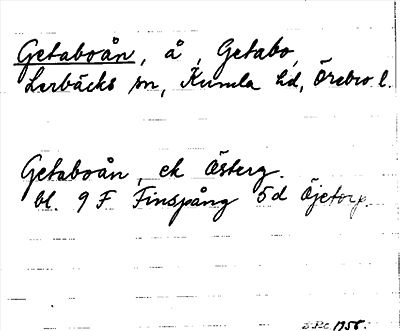 Getaboån, å, Getabo,
Lerbäcks sn, Kumla hd, Örebro l.
Getaboån, ek Österg.
bl. 9 F Finspång 5d Öjetorp.
1956.